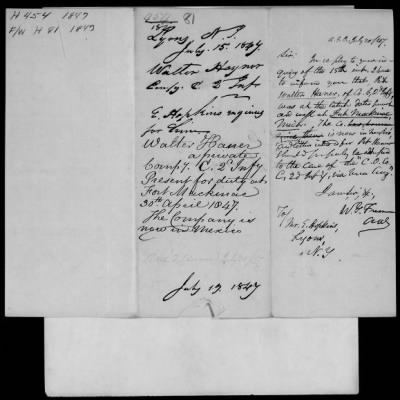 H 454 1847
F/W H 81 1847
81
Lyons, N.Y.
July 15. 1847.
Walter Haynor
Comp'y. C 2 Inf'y
E. Hopkins inquires
for him
Walter Haner
a private
Comp'y. "C." 2d Inf'y
Present for duty at
Fort Mackinac
30th April 1847.
The Company is
now in Mexico
July 19. 1847
A.G.O. July 20/47.
Sir:
In reply to your in-
quiry of the 15th inst. I have
to inform you that
Walter Haner, of Co. C, 2d Inf'y,
was at the latest dates present
and well at Fort Mackinac
Mich. The Co.
is now in Mexico
to the Care of the C. O. Co.
C, 2d Inf'y, via Vera Cruz.
I am Sir, &c,
W. G. Freeman
AAG
To
Mr. E. Hopkins,
Lyons,
N.Y